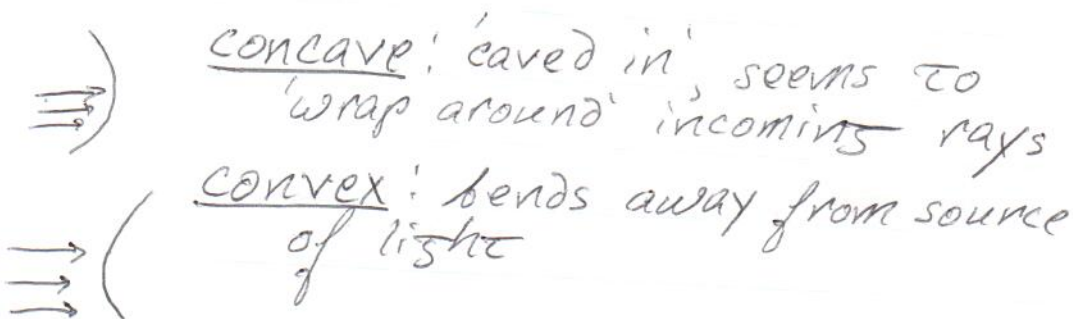 concave: 'caved in', seems to
'wrap around' incoming rays
convex: bends away from source
of light